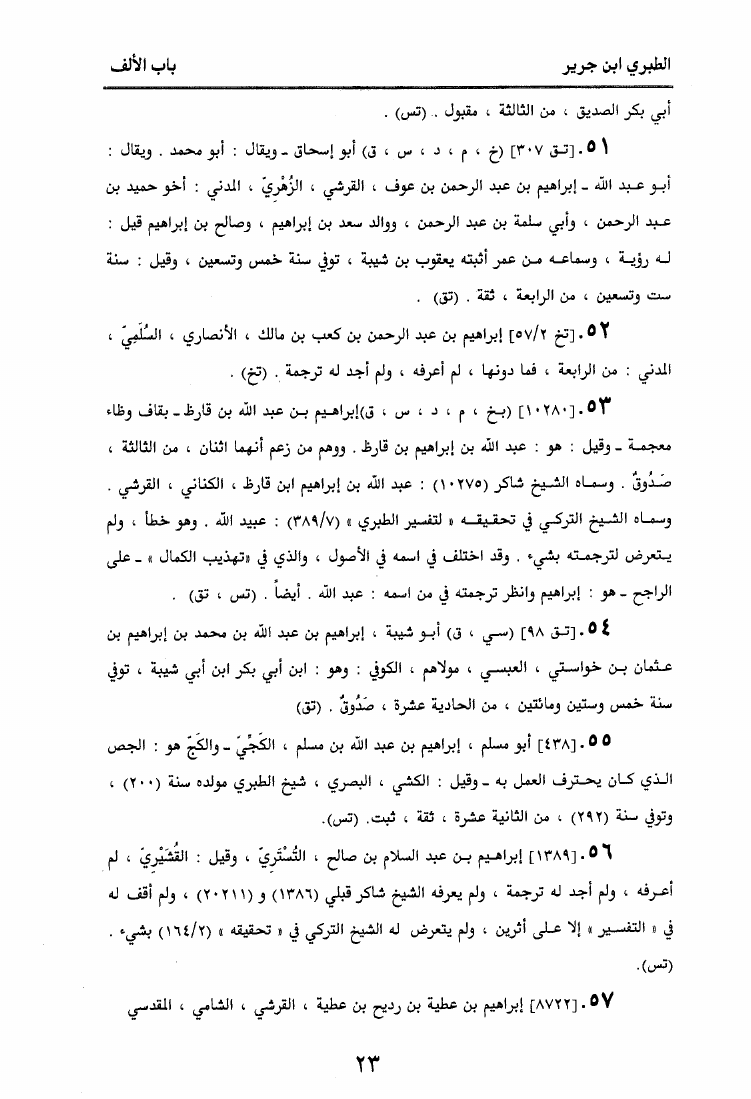 الطبري ابن جرير
باب الألف
أبي بكر الصديق ، من الثالثة ، مقبول . (تس) .
٥١. [تق ٣٠٧] (خ ، م ، د ، س ، ق) أبو إسحاق ـ ويقال : أبو محمد . ويقال :
أبو عبد الله ـ إبراهيم بن عبد الرحمن بن عوف ، القرشي ، الزُهْرِيّ ، المدني : أخو حميد بن
عبد الرحمن ، وأبي سلمة بن عبد الرحمن ، ووالد سعد بن إبراهيم ، وصالح بن إبراهيم قيل :
له رؤية ، وسماعه من عمر أثبته يعقوب بن شيبة ، توفي سنة خمس وتسعين ، وقيل : سنة
ست وتسعين ، من الرابعة ، ثقة . (تق) .
٥٢. [تخ ٥٧/٢] إبراهيم بن عبد الرحمن بن كعب بن مالك ، الأنصاري ، السُلَمِيّ ،
المدني : من الرابعة ، فما دونها ، لم أعرفه ، ولم أجد له ترجمة . (تخ) .
٥٣. [١٠٢٨٠] (بخ ، م ، د ، س ، ق)إبراهيم بن عبد الله بن قارظ ـ بقاف وظاء
معجمة ـ وقيل : هو : عبد الله بن إبراهيم بن قارظ . ووهم من زعم أنهما اثنان ، من الثالثة ،
صَدُوقٌ . وسماه الشيخ شاكر (١٠٢٧٥) : عبد الله بن إبراهيم ابن قارظ ، الكناني ، القرشي .
وسماه الشيخ التركي في تحقيقه « لتفسير الطبري » (٣٨٩/٧) : عبيد الله . وهو خطأ ، ولم
يتعرض لترجمته بشيء . وقد اختلف في اسمه في الأصول ، والذي في «تهذيب الكمال » ـ على
الراجح ـ هو : إبراهيم وانظر ترجمته في من اسمه : عبد الله . أيضاً . (تس ، تق) .
٥٤. [تق ٩٨] (سي ، ق) أبو شيبة ، إبراهيم بن عبد الله بن محمد بن إبراهيم بن
عثمان بن خواستي ، العبسي ، مولاهم ، الكوفي : وهو : ابن أبي بكر ابن أبي شيبة ، توفي
سنة خمس وستين ومائتين ، من الحادية عشرة ، صَدُوقٌ . (تق)
٥٥. [٤٣٨] أبو مسلم ، إبراهيم بن عبد الله بن مسلم ، الكَجِّيّ ـ والكَجّ هو : الجص
الذي كان يحترف العمل به ـ وقيل : الكشي ، البصري ، شيخ الطبري مولده سنة (٢٠٠) ،
وتوفي سنة (٢٩٢) ، من الثانية عشرة ، ثقة ، ثبت. (تس).
٥٦. [١٣٨٩] إبراهيم بن عبد السلام بن صالح ، التُسْتَرِيّ ، وقيل : القُشَيْرِيّ ، لم
أعرفه ، ولم أجد له ترجمة ، ولم يعرفه الشيخ شاكر قبلي (١٣٨٦) و (٢٠٢١١) ، ولم أقف له
في « التفسير » إلا على أثرين ، ولم يتعرض له الشيخ التركي في « تحقيقه » (١٦٤/٢) بشيء .
(تس).
٥٧. [٨٧٢٢] إبراهيم بن عطية بن رديح بن عطية ، القرشي ، الشامي ، المقدسي
٢٣